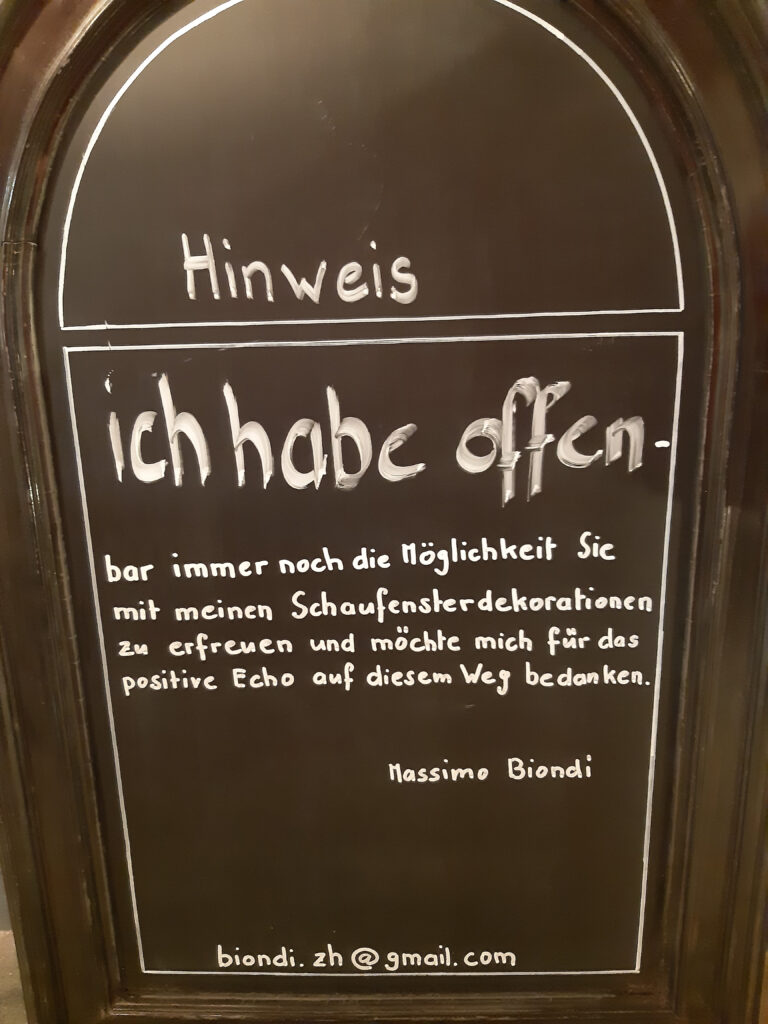 Hinweis
ich habe offen-
bar immer noch die Möglichkeit Sie
mit meinen Schaufensterdekorationen
zu erfreuen und möchte mich für das
positive Echo auf diesem Weg bedanken.
Massimo Biondi
biondi.zh@gmail.com